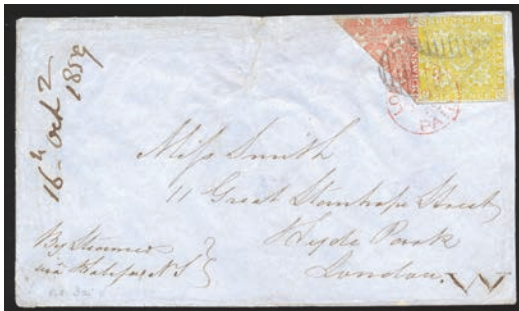 16th Oct 2
1857
NEW
LO
PA
Miss Smith
11 Great Stanhope Street
Hyde Park
London
By Steamer
via Halifax, N S